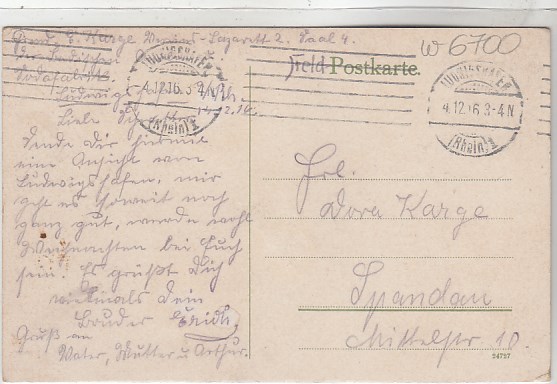 E. Karge Vereins-Lazarett 2. Saal 4.
Sodafabrik.
Ludwigshafen
w 6700
Feld-Postkarte.
LUDWIGSHAFEN
4.12.16.3-4N
(Rhein)
LUDWIGSHAFEN
4.12.16.3-4N
(Rhein)
Liebe
Sende Dir hiermit
eine Ansicht von
Ludwigshafen, mir
geht es soweit noch
ganz gut, werde wohl
Weihnachten bei Euch
sein. Es grüßt Dich
vielmals Dein
Bruder Erich.
Gruß an
Vater, Mutter u. Arthur.
Frl.
Dora Karge
Spandau
Mittelstr 10.
24757